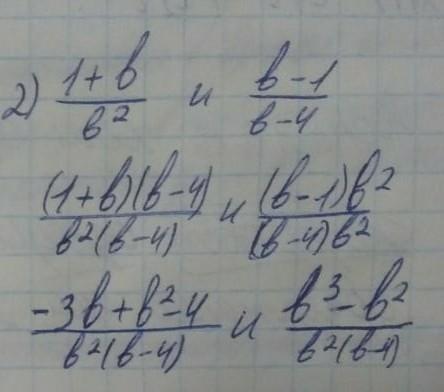 2) \frac{1+b}{b^2} и \frac{b-1}{b-4}
\frac{(1+b)(b-4)}{b^2(b-4)} и \frac{(b-1)b^2}{(b-4)b^2}
\frac{-3b+b^2-4}{b^2(b-4)} и \frac{b^3-b^2}{b^2(b-4)}